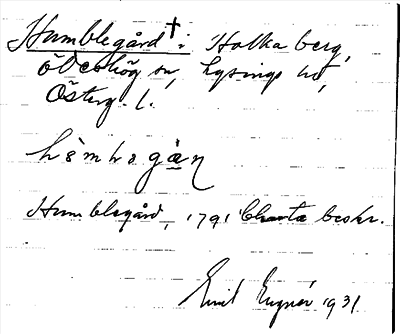 Humblegård †: Holkaberg,
Ödeshög sn, Lysings hd,
Österg. l.
Humblegård, 1791 Charta beskr.
Emil Eugnér 1931